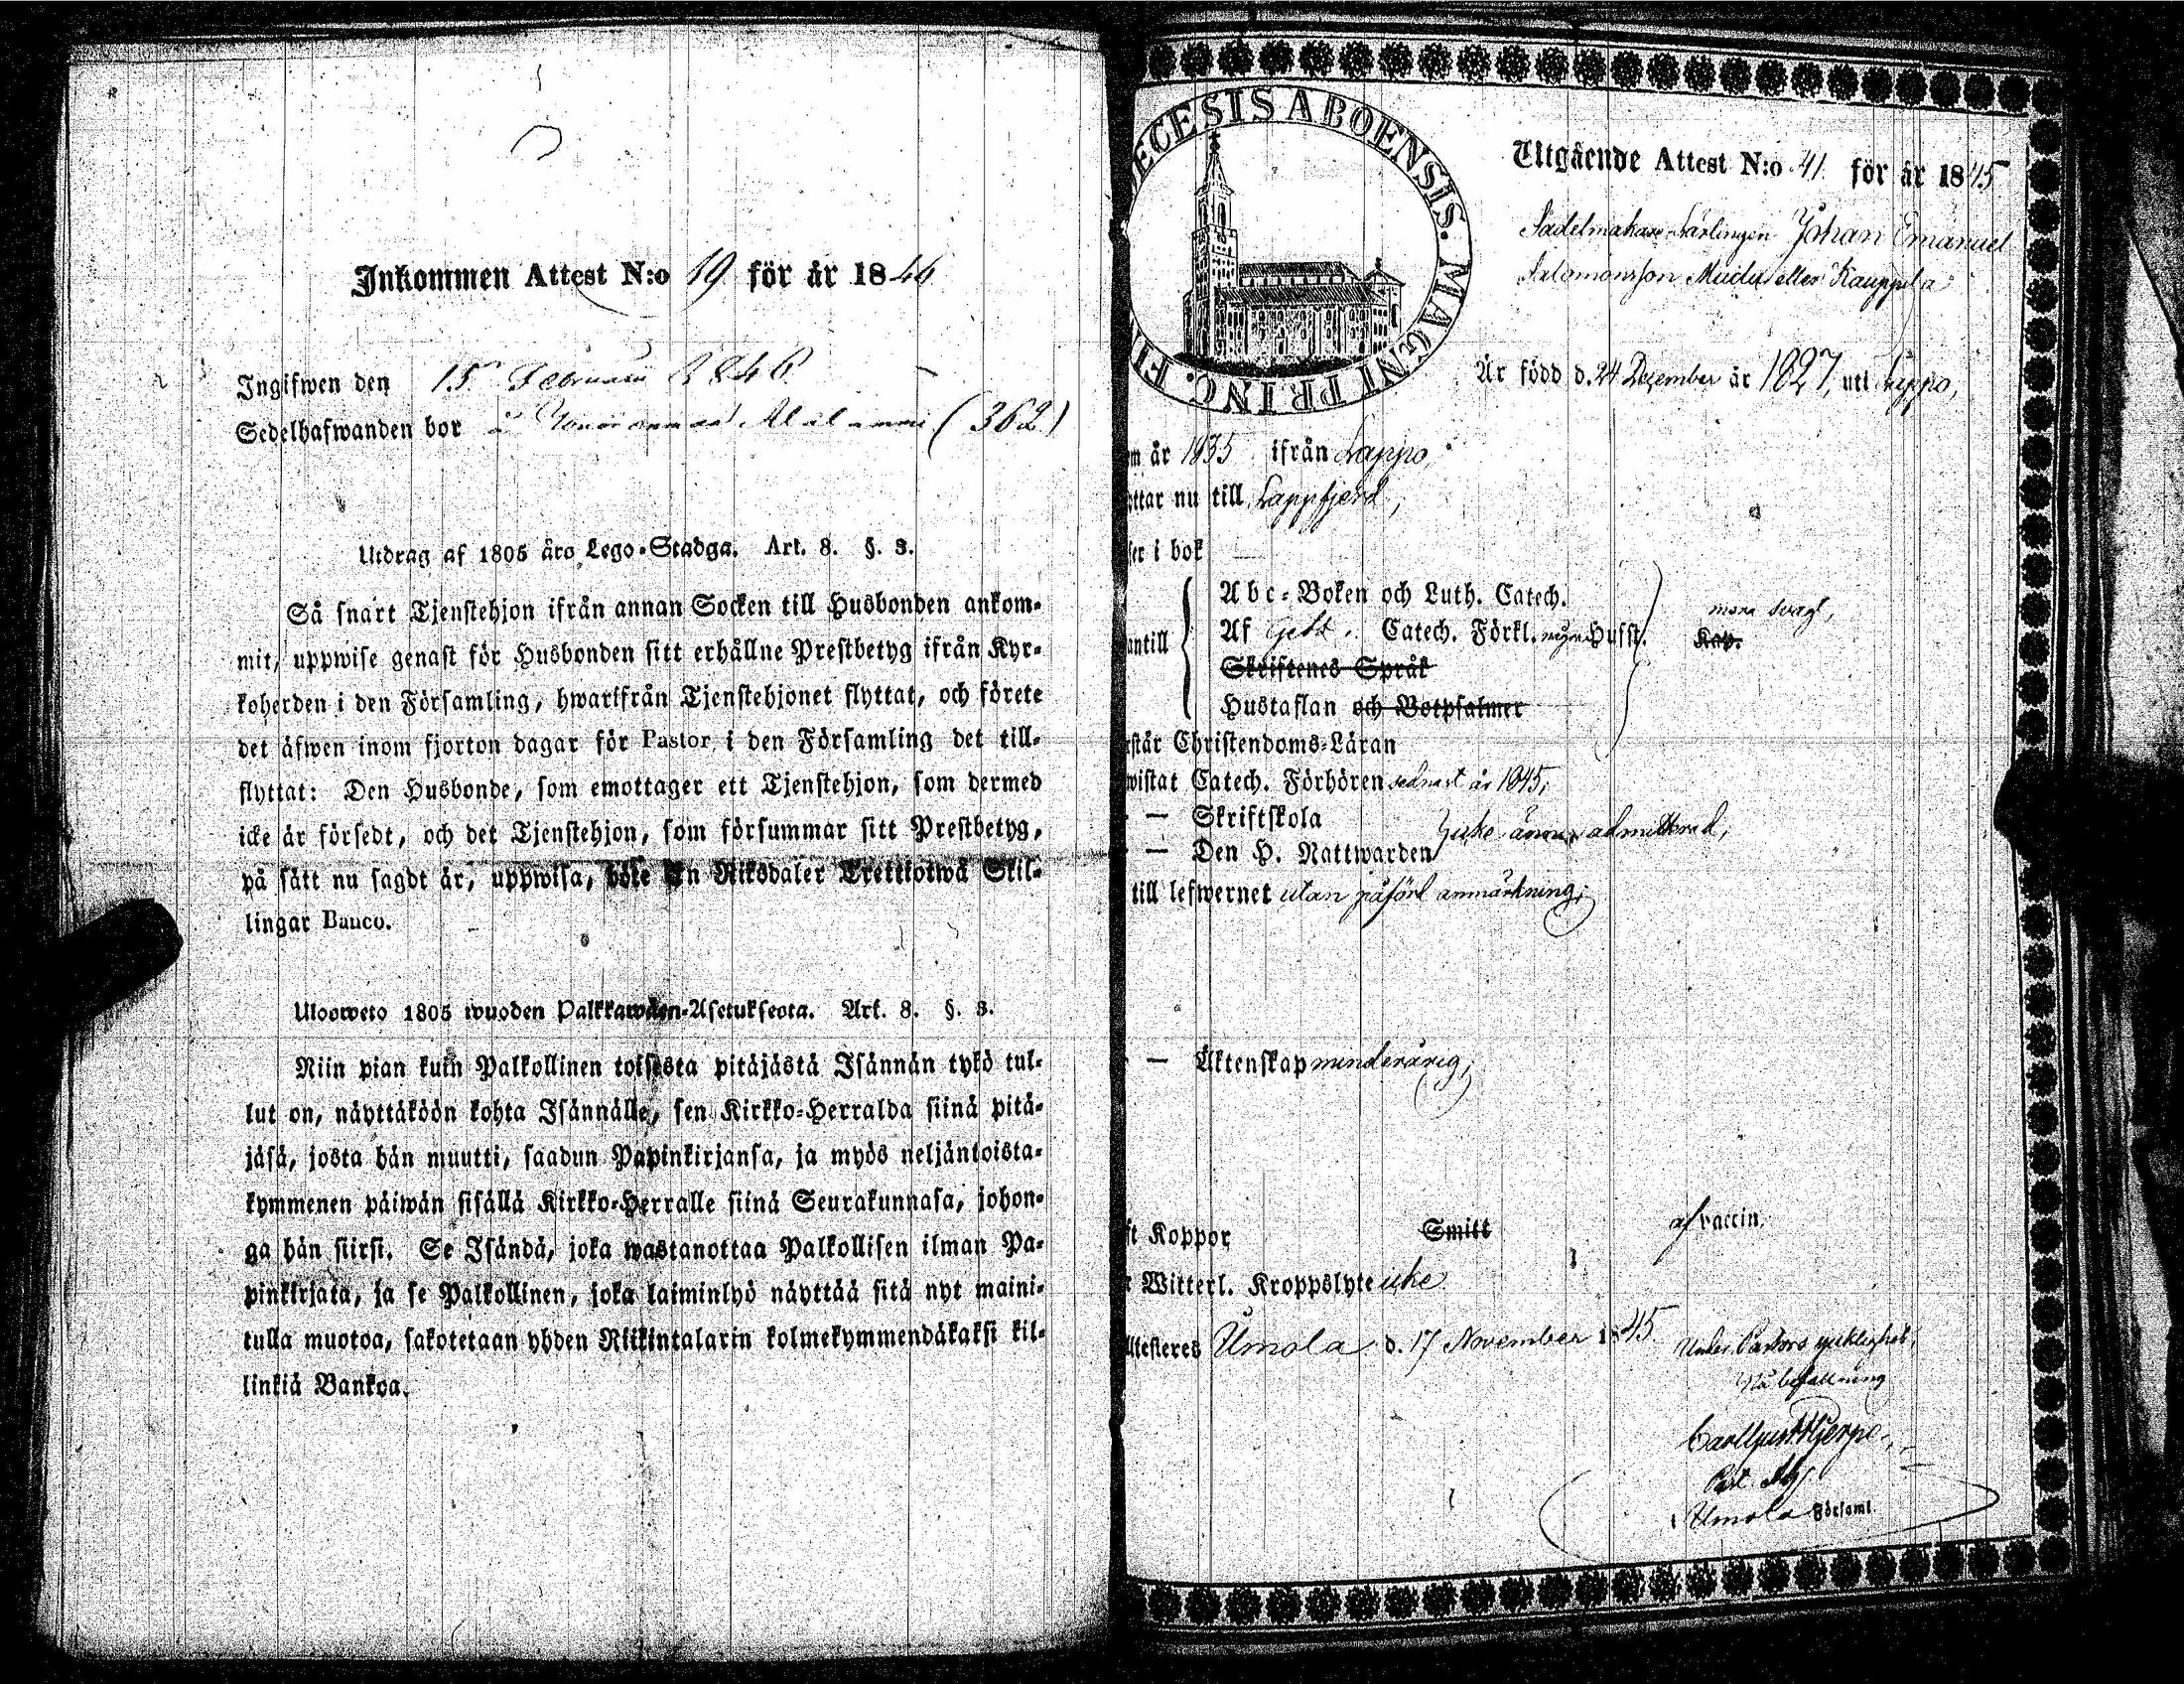 Inkommen Attest N:o 19 för år 1846
Ingifwen den 15 Februarii 1846.
Sedelhafwanden bor i (362)
Utdrag af 1805 års Lego-Stadga. Art. 8. §. 3.
Så snart Tjenstehjon ifrån annan Socken till Husbonden ankom-
mit, uppwise genast för Husbonden sitt erhållne Prestbetyg ifrån Kyr-
koherden i den Församling, hwarifrån Tjenstehjonet flyttat, och förete
det äfwen inom fjorton dagar för Pastor i den Församling det till-
flyttat: Den Husbonde, som emottager ett Tjenstehjon, som dermed
icke är försedt, och det Tjenstehjon, som försummar sitt Prestbetyg,
på sätt nu sagdt är, uppwisa, böte En Riksdaler Trettiotwå Skil-
lingar Banco.
Ulosweto 1805 wuoden Palkkawäen-Asetuksesta. Art. 8. §. 3.
Niin pian kuin Palkollinen toisesta pitäjästä Isännän tykö tul-
lut on, näyttäköön kohta Isännälle, sen Kirkko-Herralda siinä pitä-
jäsä, josta hän muutti, saadun Papinkirjansa, ja myös neljäntoista-
kymmenen päiwän sisällä Kirkko-Herralle siinä Seurakunnasa, johon-
ga hän siirsi. Se Isändä, joka wastanottaa Palkollisen ilman Pa-
pinkirjata, ja se Palkollinen, joka laiminlyö näyttää sitä nyt maini-
tulla muotoa, sakotetaan yhden Riikintalarin kolmekymmendäkaksi kil-
linkiä Bankoa.
ECESIS ABOENSIS. MAGNI PRINC. FI
Utgående Attest N:o 41 för år 1845
Sadelmakare Lärlingen Johan Emanuel
Salomonsson eller Kauppila
Är född d. 24 December år 1827, uti Lappo,
m år 1835 ifrån Lappo,
ottar nu till Lappfjerd,
ser i bok
Abc-Boken och Luth. Catech.
antill Af Geb. Catech. Förkl. Hufst. mera svagt, Kap.
Skriftenes Språk
Hustaflan och Botpsalmer
rstår Christendoms-Läran
wistat Catech. Förhören sednast år 1845,
— Skriftskola
— Den H. Nattwarden Icke ännu admitterad,
till lefwernet utan påförd anmärkning;
— Äktenskap minderårig,
ft Koppor Smitt af vaccin,
r Witterl. Kroppslyte icke
Attesteres Umola d. 17 November 1845.
Under Pastors sjuklighet,
På befallning
Carl Gust Hjerpe
Past. Adj.
i Umola Församl.